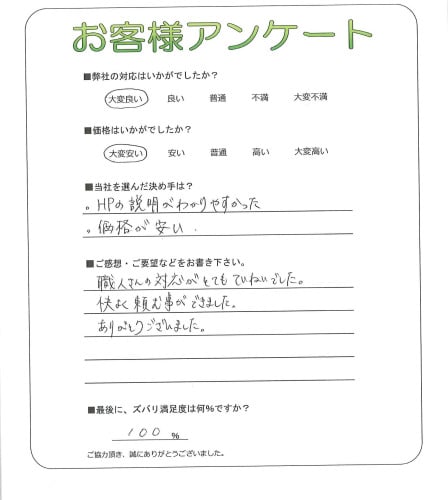 お客様アンケート
■弊社の対応はいかがでしたか?
大変良い 良い 普通 不満 大変不満
■価格はいかがでしたか?
大変安い 安い 普通 高い 大変高い
■当社を選んだ決め手は?
。HPの説明がわかりやすかった
。価格が安い.
■ご感想・ご要望などをお書き下さい。
職人さんの対応がとてもていねいでした。
快よく頼む事ができました。
ありがとうございました。
■最後に、ズバリ満足度は何%ですか?
100 %
ご協力頂き、誠にありがとうございました。